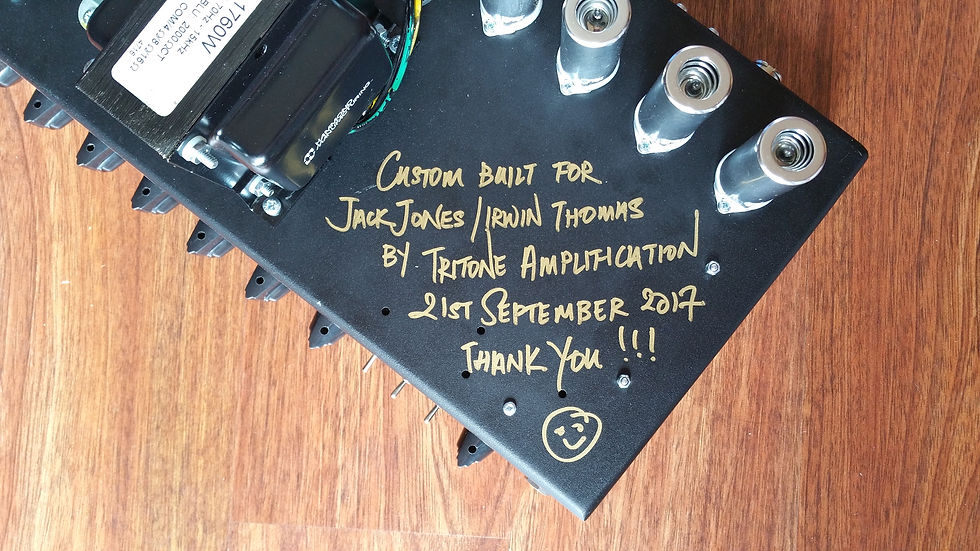 1760W
70HZ - 15KHZ
BLU 2000ΩCT
COM/4Ω/8Ω/16Ω
CUSTOM BUILT FOR
JACK JONES / IRWIN THOMAS
BY TRITONE AMPLIFICATION
21ST SEPTEMBER 2017
THANK YOU !!!